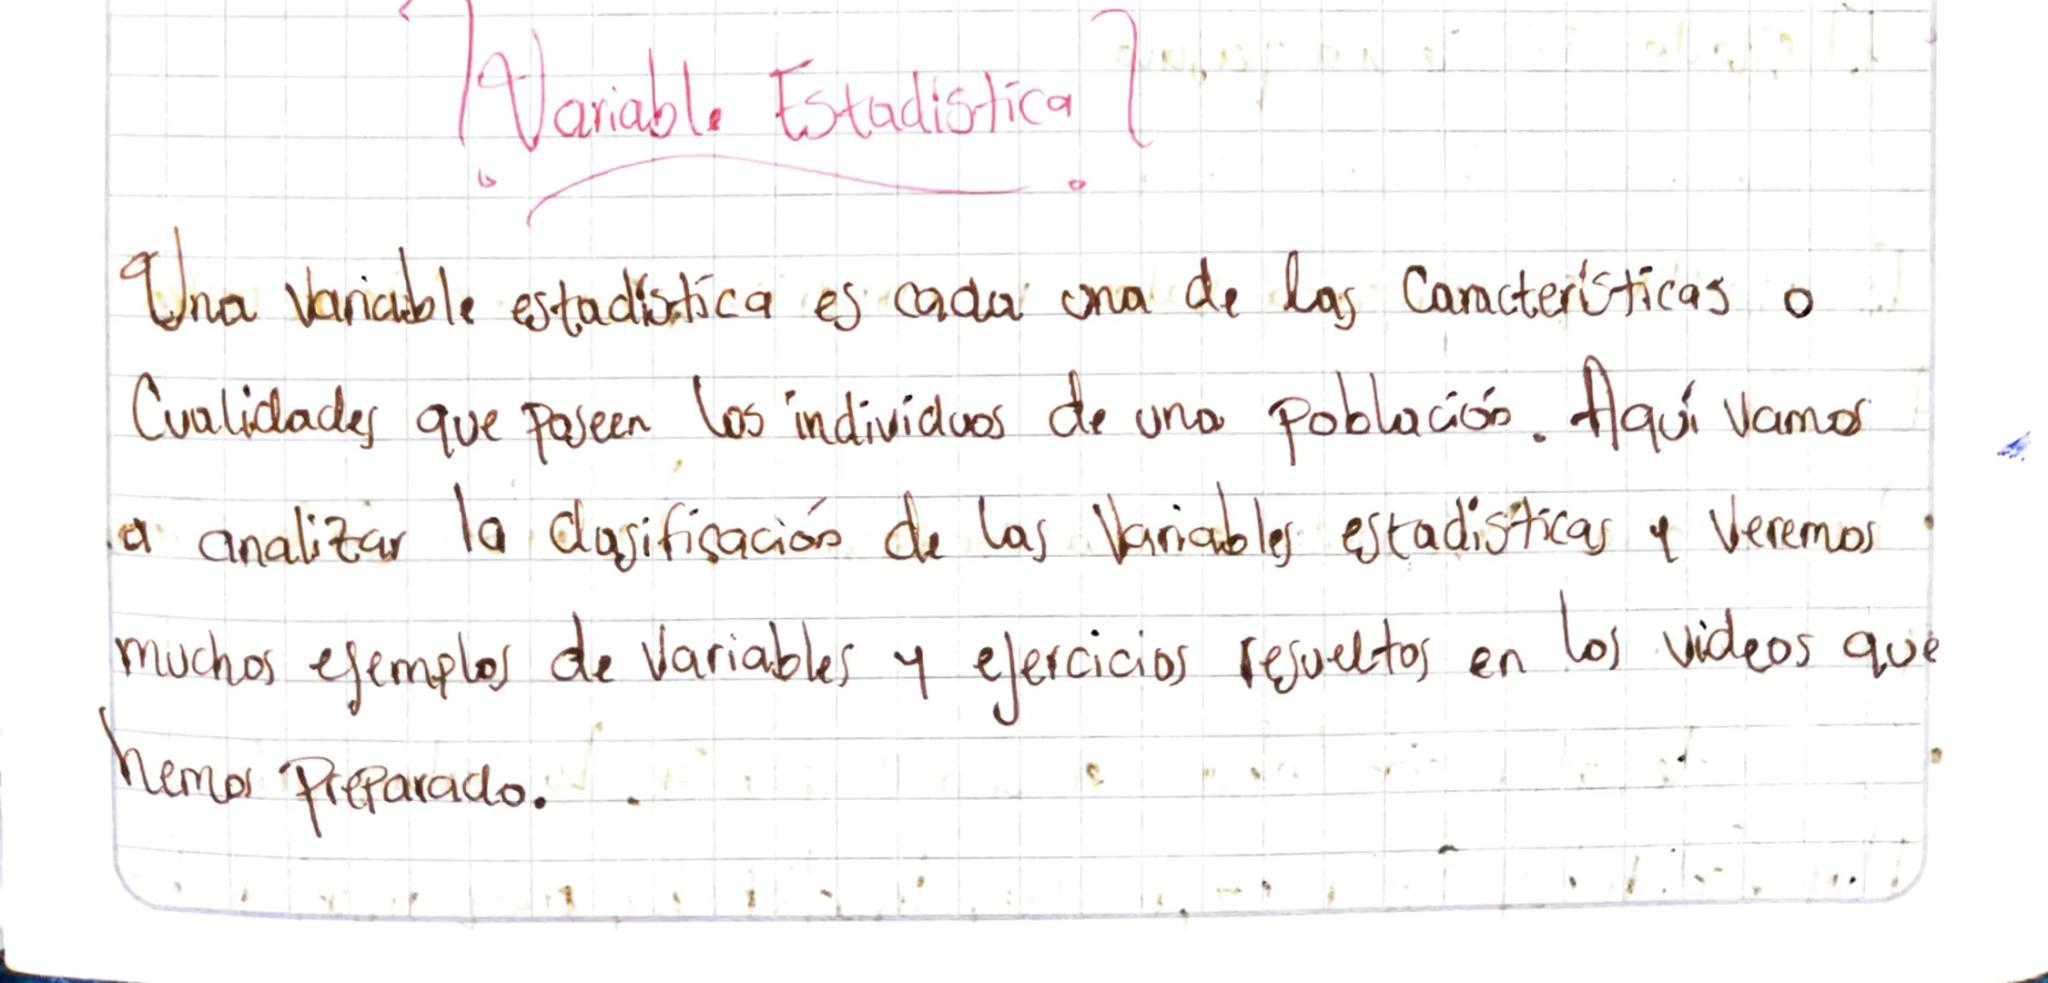 Variable Estadistica
Una variable estadística es cada una de las Características o
Cualidades que poseen los individuos de una población. Aquí vamos
a analizar la clasificación de las Variables estadísticas y Veremos
muchos ejemplos de Variables y ejercicios resueltos en los videos que
hemos Preparado.